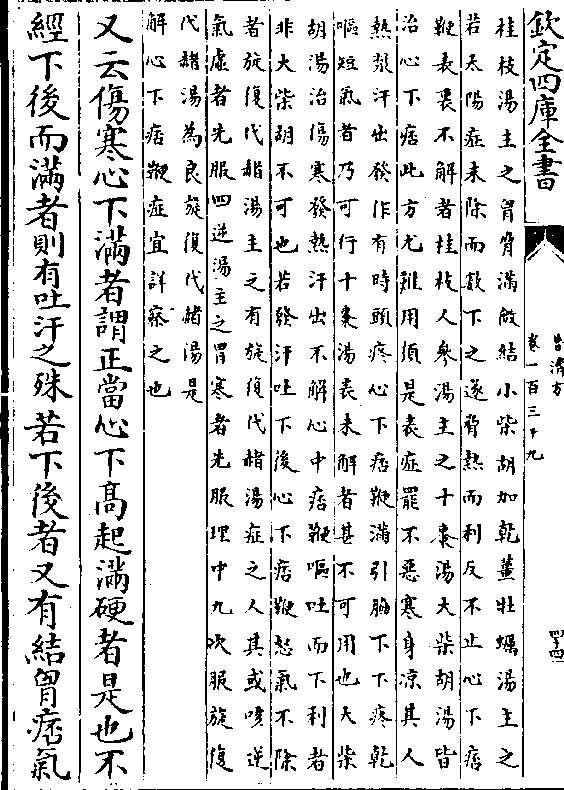 欽定四庫全書
普濟方
卷一百三十九
四十四
桂枝湯主之胃脅滿微結小柴胡加乾薑牡蠣湯主之
若太陽症未除而數下之遂脅熱而利反不止心下痞
鞕表裏不解者桂枝人參湯主之十棗湯大柴胡湯皆
治心下痞此方尤難用須是表症罷不惡寒身凉其人
熱漐汗出發作有時頭疼心下痞鞕滿引脇下下疼乾
嘔短氣者乃可行十棗湯表未解者甚不可用也大柴
胡湯治傷寒發熱汗出不解心中痞鞕嘔吐而下利者
非大柴胡不可也若發汗吐下後心下痞鞕愁氣不除
者旋復代赭湯主之有旋復代赭湯症之人其或咳逆
氣虛者先服四逆湯主之胃寒者先服理中丸次服旋復
代赭湯為良旋復代赭湯是
解心下痞鞕症宜詳察之也
又云傷寒心下滿者謂正當心下髙起滿硬者是也不
經下後而滿者則有吐汗之殊若下後者又有結胷痞氣